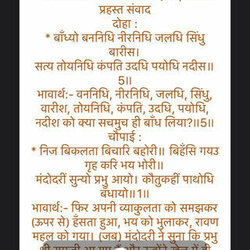 प्रहस्त संवाद
दोहा :
* बाँध्यो बननिधि नीरनिधि जलधि सिंधु
बारीस।
सत्य तोयनिधि कंपति उदधि पयोधि नदीस॥
5॥
भावार्थ:- वननिधि, नीरनिधि, जलधि, सिंधु,
वारीश, तोयनिधि, कंपति, उदधि, पयोधि,
नदीश को क्या सचमुच ही बाँध लिया?॥5॥
चौपाई :
* निज बिकलता बिचारि बहोरी॥ बिहँसि गयउ
गृह करि भय भोरी॥
मंदोदरीं सुन्यो प्रभु आयो। कौतुकहीं पाथोधि
बँधायो॥1॥
भावार्थ:- फिर अपनी व्याकुलता को समझकर
(ऊपर से) हँसता हुआ, भय को भुलाकर, रावण
महल को गया। (जब) मंदोदरी ने सुना कि प्रभु